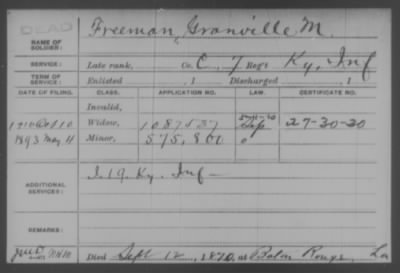 DEAD
NAME OF SOLDIER: Freeman, Granville M.
SERVICE: Late rank, Co. C, 7 Reg't Ky, Inf
TERM OF SERVICE: Enlisted , 1 Discharged , 1
DATE OF FILING. CLASS. APPLICATION NO. LAW. CERTIFICATE NO.
Invalid,
Widow, 1087537
1893 May 11 Minor, 575,800
ADDITIONAL SERVICES: I. 19. Ky. Inf
REMARKS:
Died Sept 12, 1870, at Baton Rouge, La